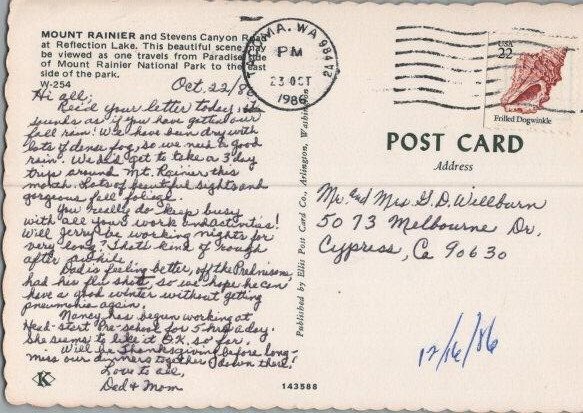 MOUNT RAINIER and Stevens Canyon Road
at Reflection Lake. This beautiful scene may
be viewed as one travels from Paradise side
of Mount Rainier National Park to the east
side of the park.
W-254
Oct. 22/86
Hi all;
Rec'd your letter today; it
sounds as if you have gotten our
fall rain! We have been dry with
lots of dense fog, so we need a good
rain. We did get to take a 3 day
trip around Mt. Rainier this
month. Lots of beautiful sights and
gorgeous fall foliage.
You really do keep busy
with all your work and activities!
Will Jerry be working nights for
very long? That's kind of rough
after awhile.
Dad is feeling better, off the Prednisone,
had his flu shot, so we hope he can
have a good winter without getting
pneumonia again.
Nancy has begun working at
Head-start Pre-school for 5 hrs a day.
She seems to like it O.K. so far.
Will be Thanksgiving before long -
miss our dinners together down there!
Love to all,
Dad & Mom
K
TACOMA, WA 984
PM
23 OCT
1986
USA
22
Frilled Dogwinkle
POST CARD
Address
Mr. and Mrs G. D. Wellburn
5073 Melbourne Dr.
Cypress, Ca 90630
12/16/86
Published by Ellis Post Card Co., Arlington, Washington
143588